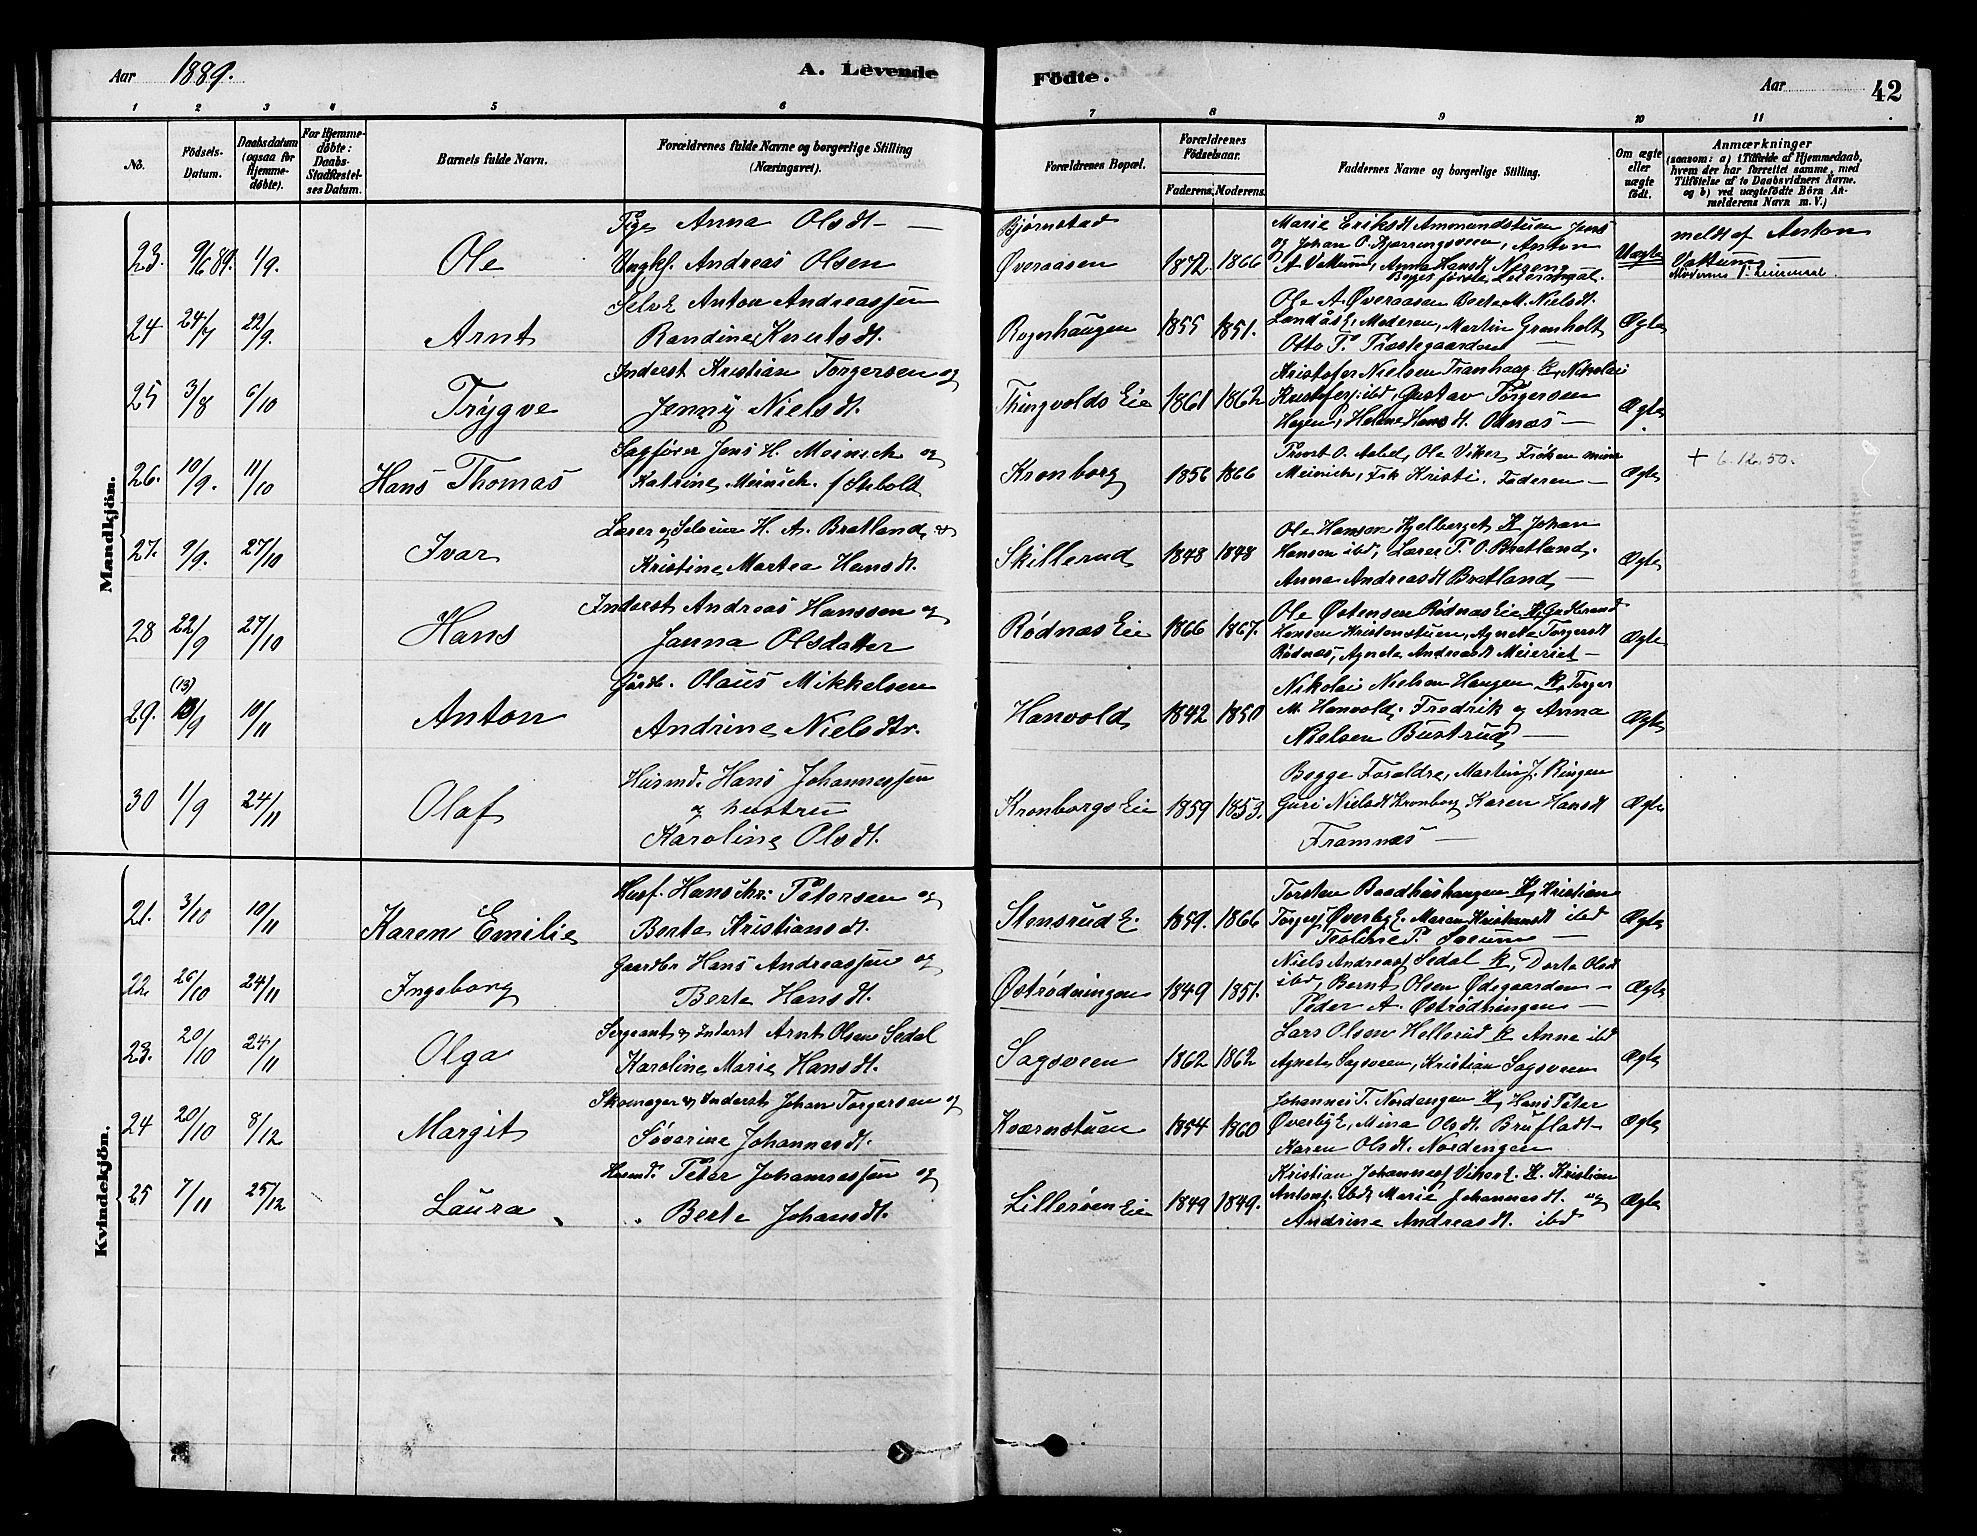 Aar 1889. A. Levende Födte. Aar 42
1 2 3 4 5 6 7 8 9 10 11
No. Födsels-Datum. Daabsdatum (ogsaa for Hjemmedöbte). For Hjemmedöbte: Daabs-Stadfæstelses Datum. Barnets fulde Navn. Forældrenes fulde Navne og borgerlige Stilling (Næringsvei). Forældrenes Bopæl. Forældrenes Födselsaar. Faderens. Moderens. Faddernes Navne og borgerlige Stilling. Om ægte eller uægte födt. Anmærkninger (saasom: a) i Tilfælde af Hjemmedaab, hvem der har forrettet samme, med Tilföielse af to Daabsvidners Navne. og b) ved uægtefödte Börn Anmelderens Navn m. V.)
Mandkjön.
23. 9/6 89. 1/9. Ole
Pige Anna Olsdt —
Ungkf. Andreas Olsen
Bjørnstad
Øveraasen 1872. 1866
Marie Eriksdt Ammundstuen Jens
og Johan O. Bjørringsveen, Anton
A Vattum, Anna Hansdt
Begges første Leiermaal.
Uægte
meldt af Anton
Vattum
Moderens 1ste Leiermaal.
24 24/7 22/9. Arnt
Selve Anton Andreassen
Randine Knutsdt.
Rognhaugen 1855 1851.
Ole A. Øveraasen Berte M. Nielsdt.
Landås E, Moderen, Martin Grønholt
Otto P. Præstegaarden —
Ægte
25 3/8 6/10 Trygve
Inderst Kristian Torgersen og
Jenny Nielsdt.
Thingvolds Eie 1861 1862
Kristofer Nielsen Tranhaug K, Nikolai
Kristofers. ibd, Gustav Torgersen
Hagen, Helene Hansdt. Odnæs —
Ægte
26. 10/9. 11/10 Hans Thomas
Sagfører Jens H. Meinich og
Katrine Meinich f Sibolt
Kronborg 1856 1866
Provst O. Aabel, Ole Viker, Frøken
Meinich, Frk Kristi. Faderen —
Ægte
+ 6.12.50.
27. 9/9. 27/10 Ivar
Lærer og Selveier H. A. Bratland, &
Kristine Martea Hansdt.
Skillerud 1848 1848
Ole Hansen Kjelberget K Johan
Hansen ibd, Lærer P. O. Bratland,
Anna Andreasdt Bratland —
Ægte
28 22/9 27/10 Hans
Inderst Andreas Hanssen og
Janna Olsdatter
Rødnæs Eie 1866 1867.
Ole Østensen Rødnæs Eie K, Gudbrand
Hansen Kristenstuen, Agnethe Torgersdt
Rødnæs, Agnete Andreasdt Meieriet —
Ægte
29. (13) 13/9 10/11 Anton
Gårdb. Olaus Mikkelsen
Andrine Nielsdtr.
Hanvold 1842 1850
Nikolai Nielsen Haugen K, Torger
M. Hanvold, Fredrik og Anna
Nielsen Bustrud —
Ægte
30 1/9 24/11 Olaf
Husmd. Hans Johannessen
og hustru
Karoline Olsdt.
Kronborgs Eie 1859 1853.
Begge Forældre, Martin J. Ringen
Guri Nielsdt Kronborg Karen Hansdt
Framnæs —
Ægte
Kvindekjön.
21. 3/10 10/11 Karen Emilie
Husf. Hans Chr. Petersen og
Berte Kristiansdt.
Stensrud E. 1859. 1866
Torsten Baadhushaugen K, Kristian
Torgers Øverby E. Maren Kristiansdt ibd
Teoline P. —
Ægte
22. 26/10 24/11 Ingeborg
Gaardbr Hans Andreassen og
Berte Hansdt.
Østrødningen 1849 1851.
Niels Andreas Sedal K, Dorte Olsd
ibd, Bernt Olsen Ødegaarden —
Peder A. Østrødningen —
Ægte
23. 20/10 24/11 Olga
Sergeant & Inderst Arnt Olsen Sedal
Karoline Marie Hansdt.
Sagsveen 1862 1862
Lars Olsen Hellerud K Anne ibd
Agnete Sagsveen, Kristian Sagsveen
Ægte
24 20/10 8/12 Margit
Skomager & Inderst Johan Torgersen og
Søverine Johannesdt.
Kværnstuen 1854 1860
Johannes T. Nordengen K, Hans Peter
Øverby E, Mina Olsdt. Brufladt
Karen Olsdt. Nordengen
Ægte
25 7/11 25/12 Laura
Husmd. Peter Johannessen og
Berte Johansdt.
Lillerøen Eie 1849 1849.
Kristian Johannes Viker E. K. Kristian
Antons. ibd, Marie Johannesdt. og
Andrine Andreasdt. ibd
Ægte